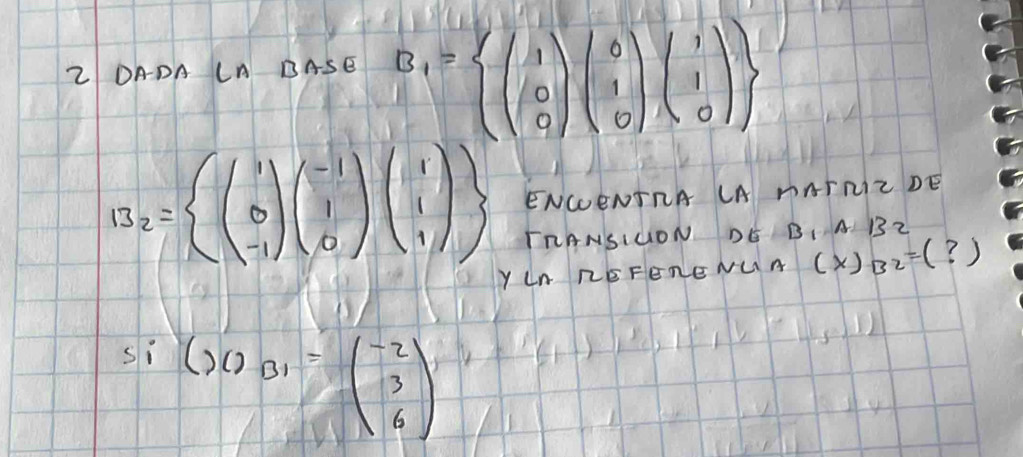 2 DADA LA BASE B₁ = { (1 0 0) (0 1 0), (1 1 0) }
B₂ = { (1 0 -1) (-1 1 0) (1 1 1) } ENCUENTRA LA MATRIZ DE
TRANSICION DE B₁ A B2
Y LA REFERENCIA (X)B2 = (?)
si (X)B1 = (-2 3 6)